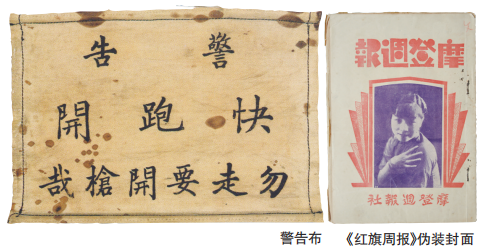 警告
快跑開
勿走要開槍哉
摩登週報
摩登週報社
警告布
《红旗周报》伪装封面